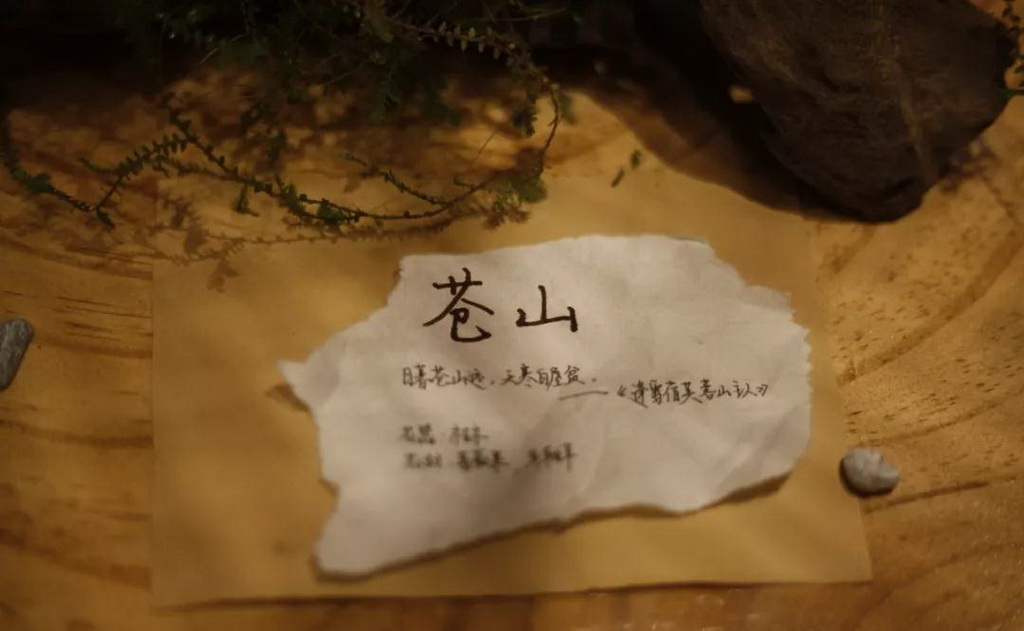 苍山
日暮苍山远，天寒白屋贫.
——《逢雪宿芙蓉山主人》